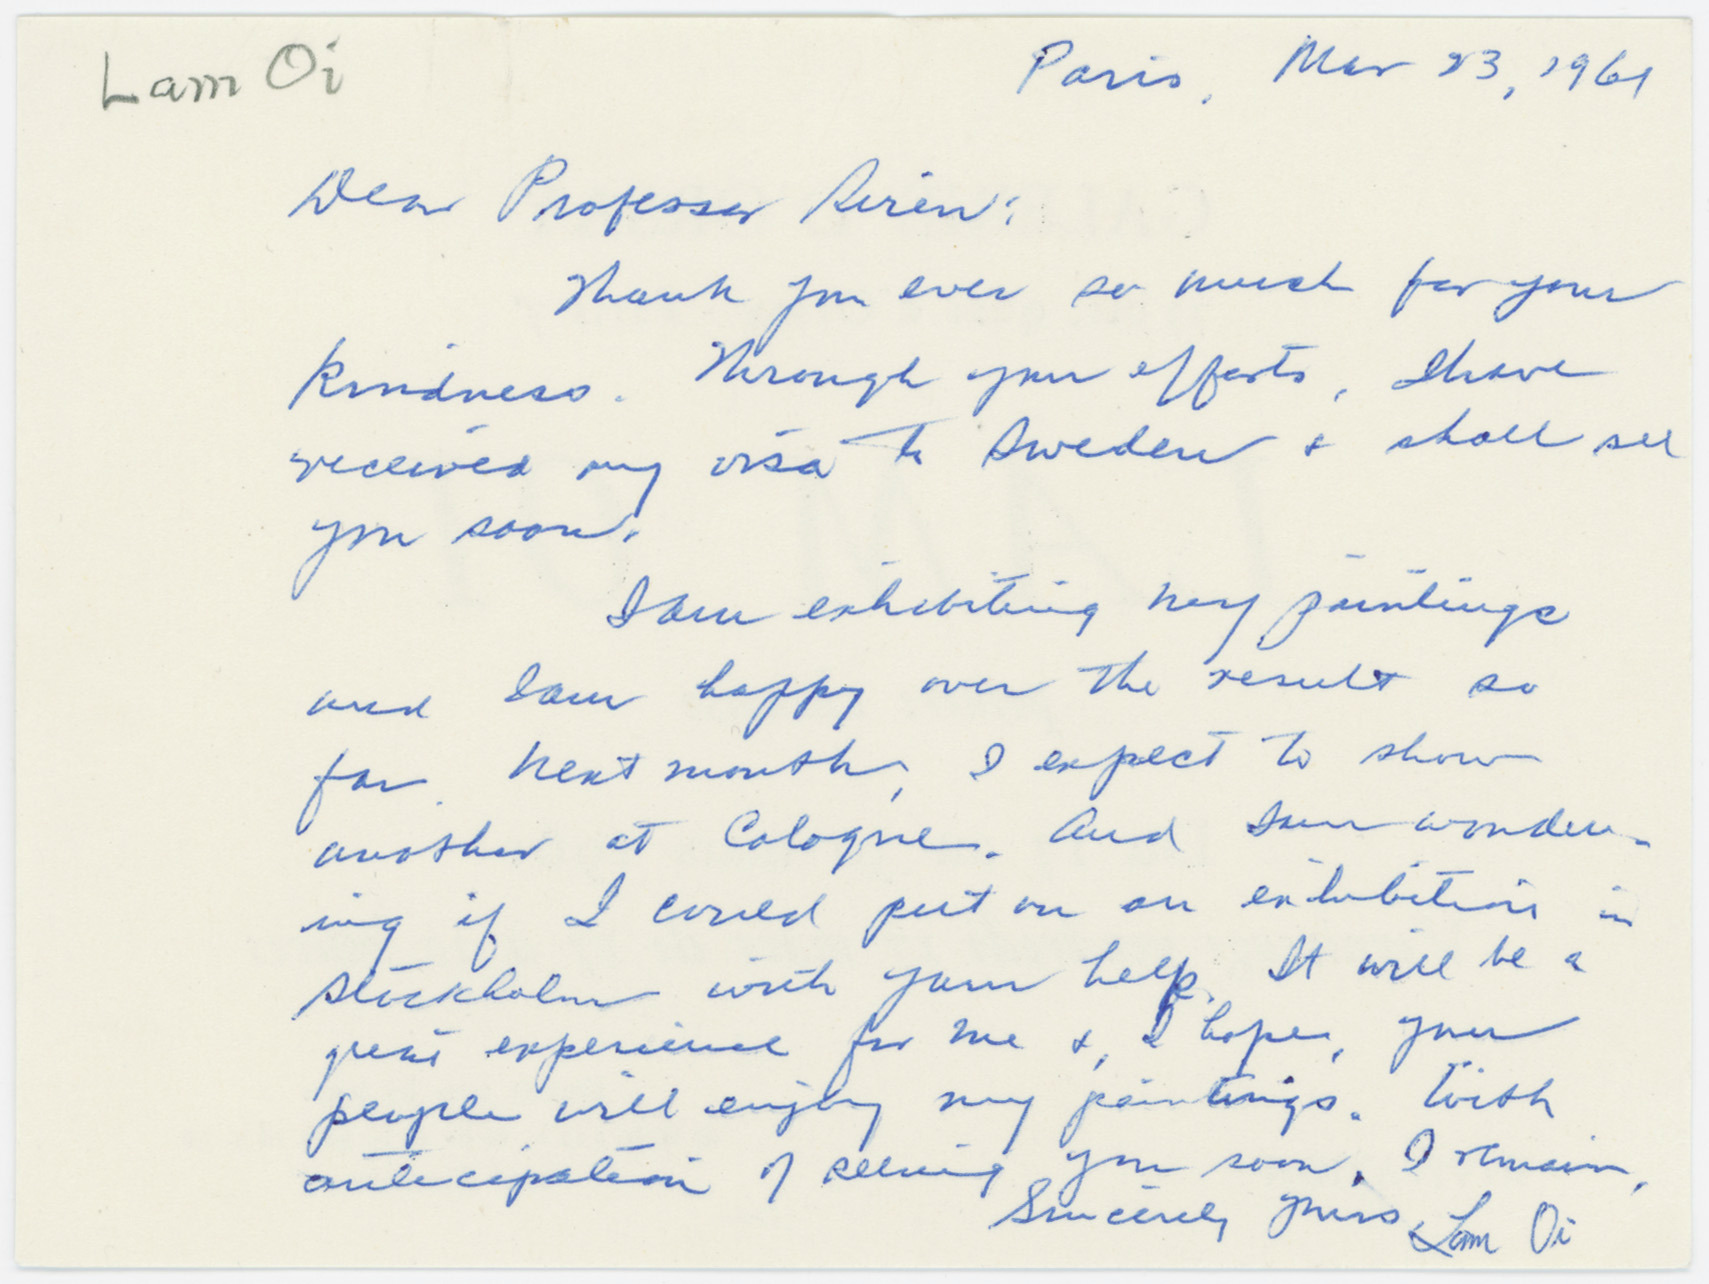 Lam Oi
Paris, Mar 23, 1961
Dear Professor Siren:
Thank you ever so much for your
kindness. Through your efforts, I have
received my visa to Sweden & shall see
you soon.
I am exhibiting my paintings
and I am happy over the result so
far. Next month, I expect to show
another at Cologne. And I am wonder-
ing if I could put on an exhibition in
Stockholm with your help. It will be a
great experience for me &, I hope, your
people will enjoy my paintings. With
anticipation of seeing you soon, I remain,
Sincerely yours, Lam Oi